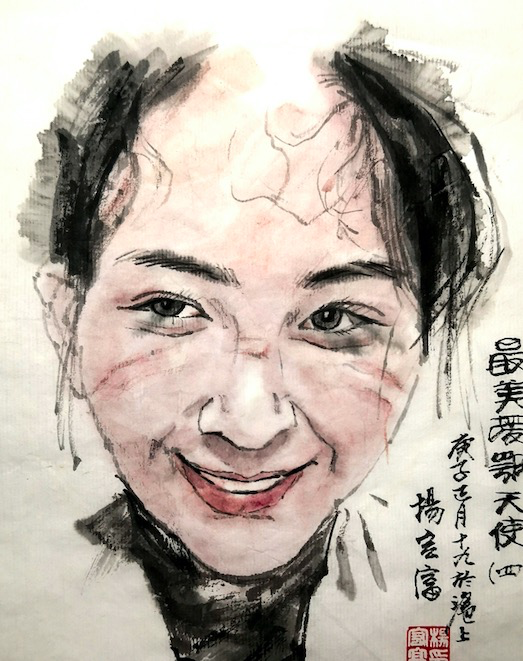 最美援鄂天使(四)
庚子正月十九於滬上
楊宏富